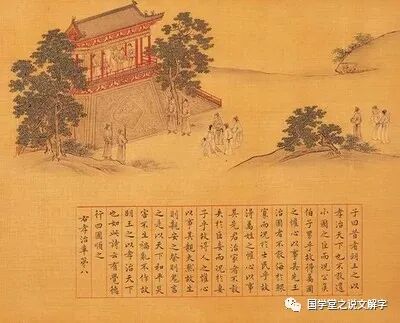 子曰昔者明王之以
孝治天下也不敢遺
小國之臣而況於公侯
伯子男乎故得萬國
之懽心以事其先王
治國者不敢侮於鰥
寡而況於士民乎故
得百姓之懽心以事
其先君治家者不敢
失於臣妾而況於妻
子乎故得人之懽心
以事其親夫然故生
則親安之祭則鬼享
之是以天下和平災
害不生禍亂不作故
明王之以孝治天下
也如此詩云有覺德
行四國順之
右孝治章第八
国学堂之说文解字